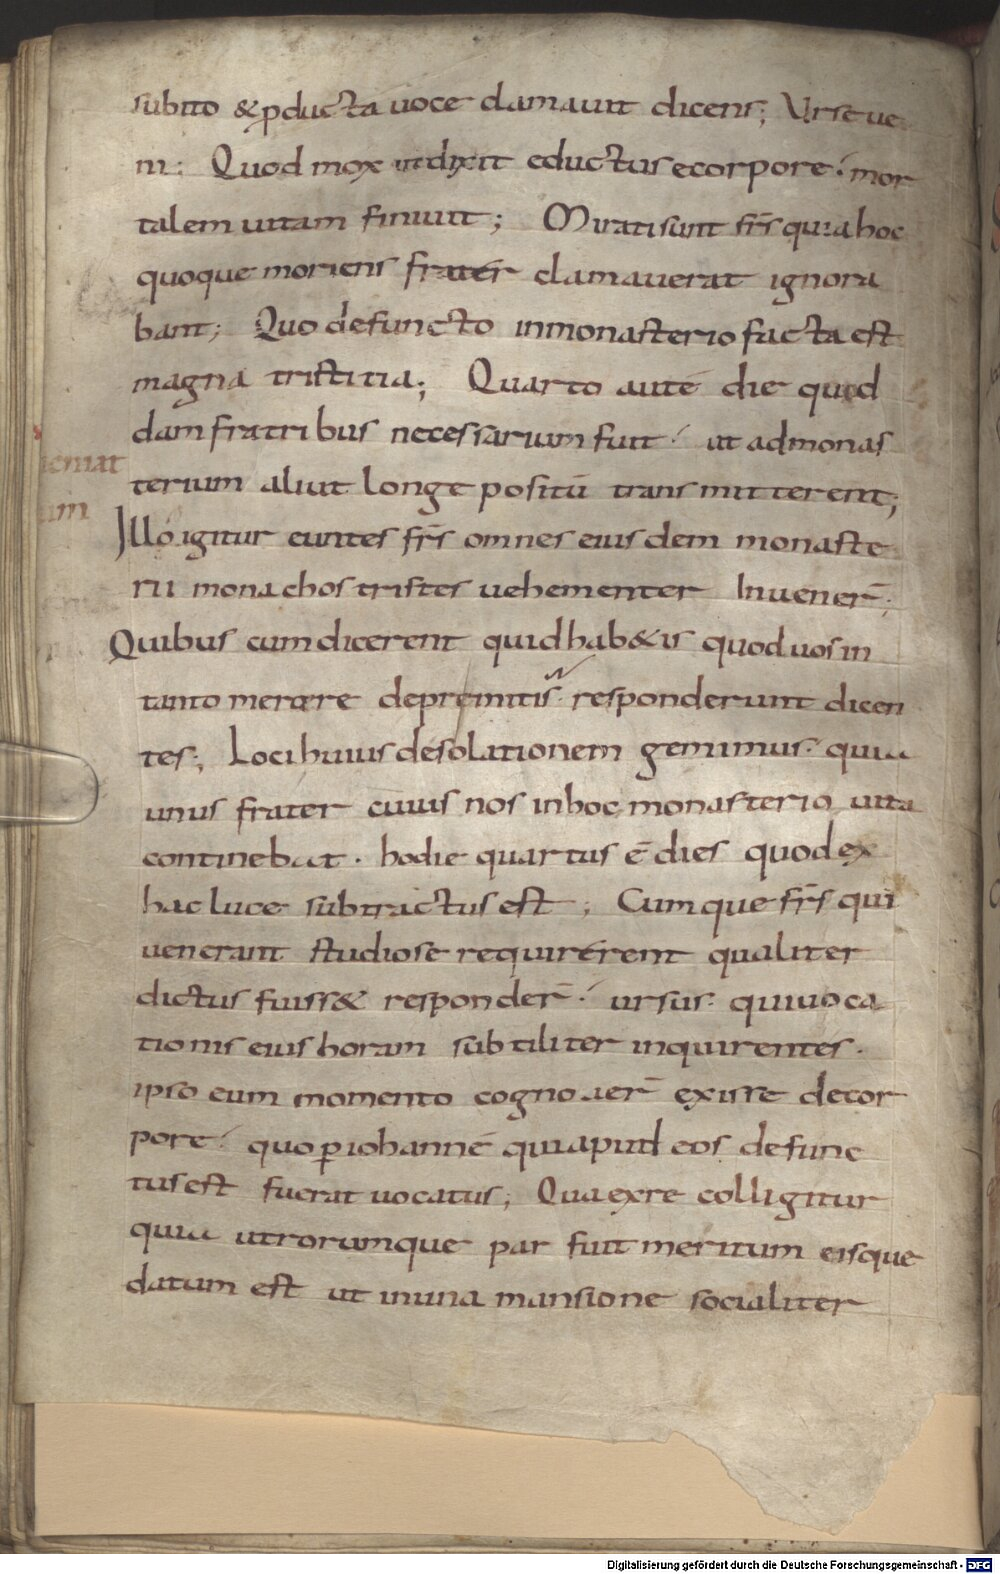 subito & pducta uoce clamauit dicens; Urse ue
ni: Quod mox ut dixit eductus e corpore mor
talem uitam finiuit; Mirati sunt frs quia hoc
quoque moriens frater clamauerat ignora
bant; Quo defuncto in monasterio facta est
magna tristitia; Quarto autē die quod
dam fratribus necessarium fuit ut ad monas
terium aliut longe positū transmitterent;
Illo igitur euntes frs omnes eiusdem monaste
rii monachos tristes uehementer Inuener̄;
Quibus cum dicerent quid hab&is quod uos in
tanto merere depremitis responderunt dicen
tes; Loci huius desolationem gemimus quia
unus frater cuius nos in hoc monasterio uita
continebat. hodie quartus ē dies quod ex
hac luce subtractus est; Cumque frs qui
uenerant studiose requirerent qualiter
dictus fuiss& responder̄ ursus qui uoca
tionis eius horam subtiliter inquirentes.
ipso eum momento cognouer̄ exisse de cor
pore quo p iohannē qui apud eos defunc
tus est fuerat uocatus; Qua ex re colligitur
quia utrorumque par fuit meritum eisque
datum est ut in una mansione socialiter
ieniat
um
Digitalisierung gefördert durch die Deutsche Forschungsgemeinschaft - DFG